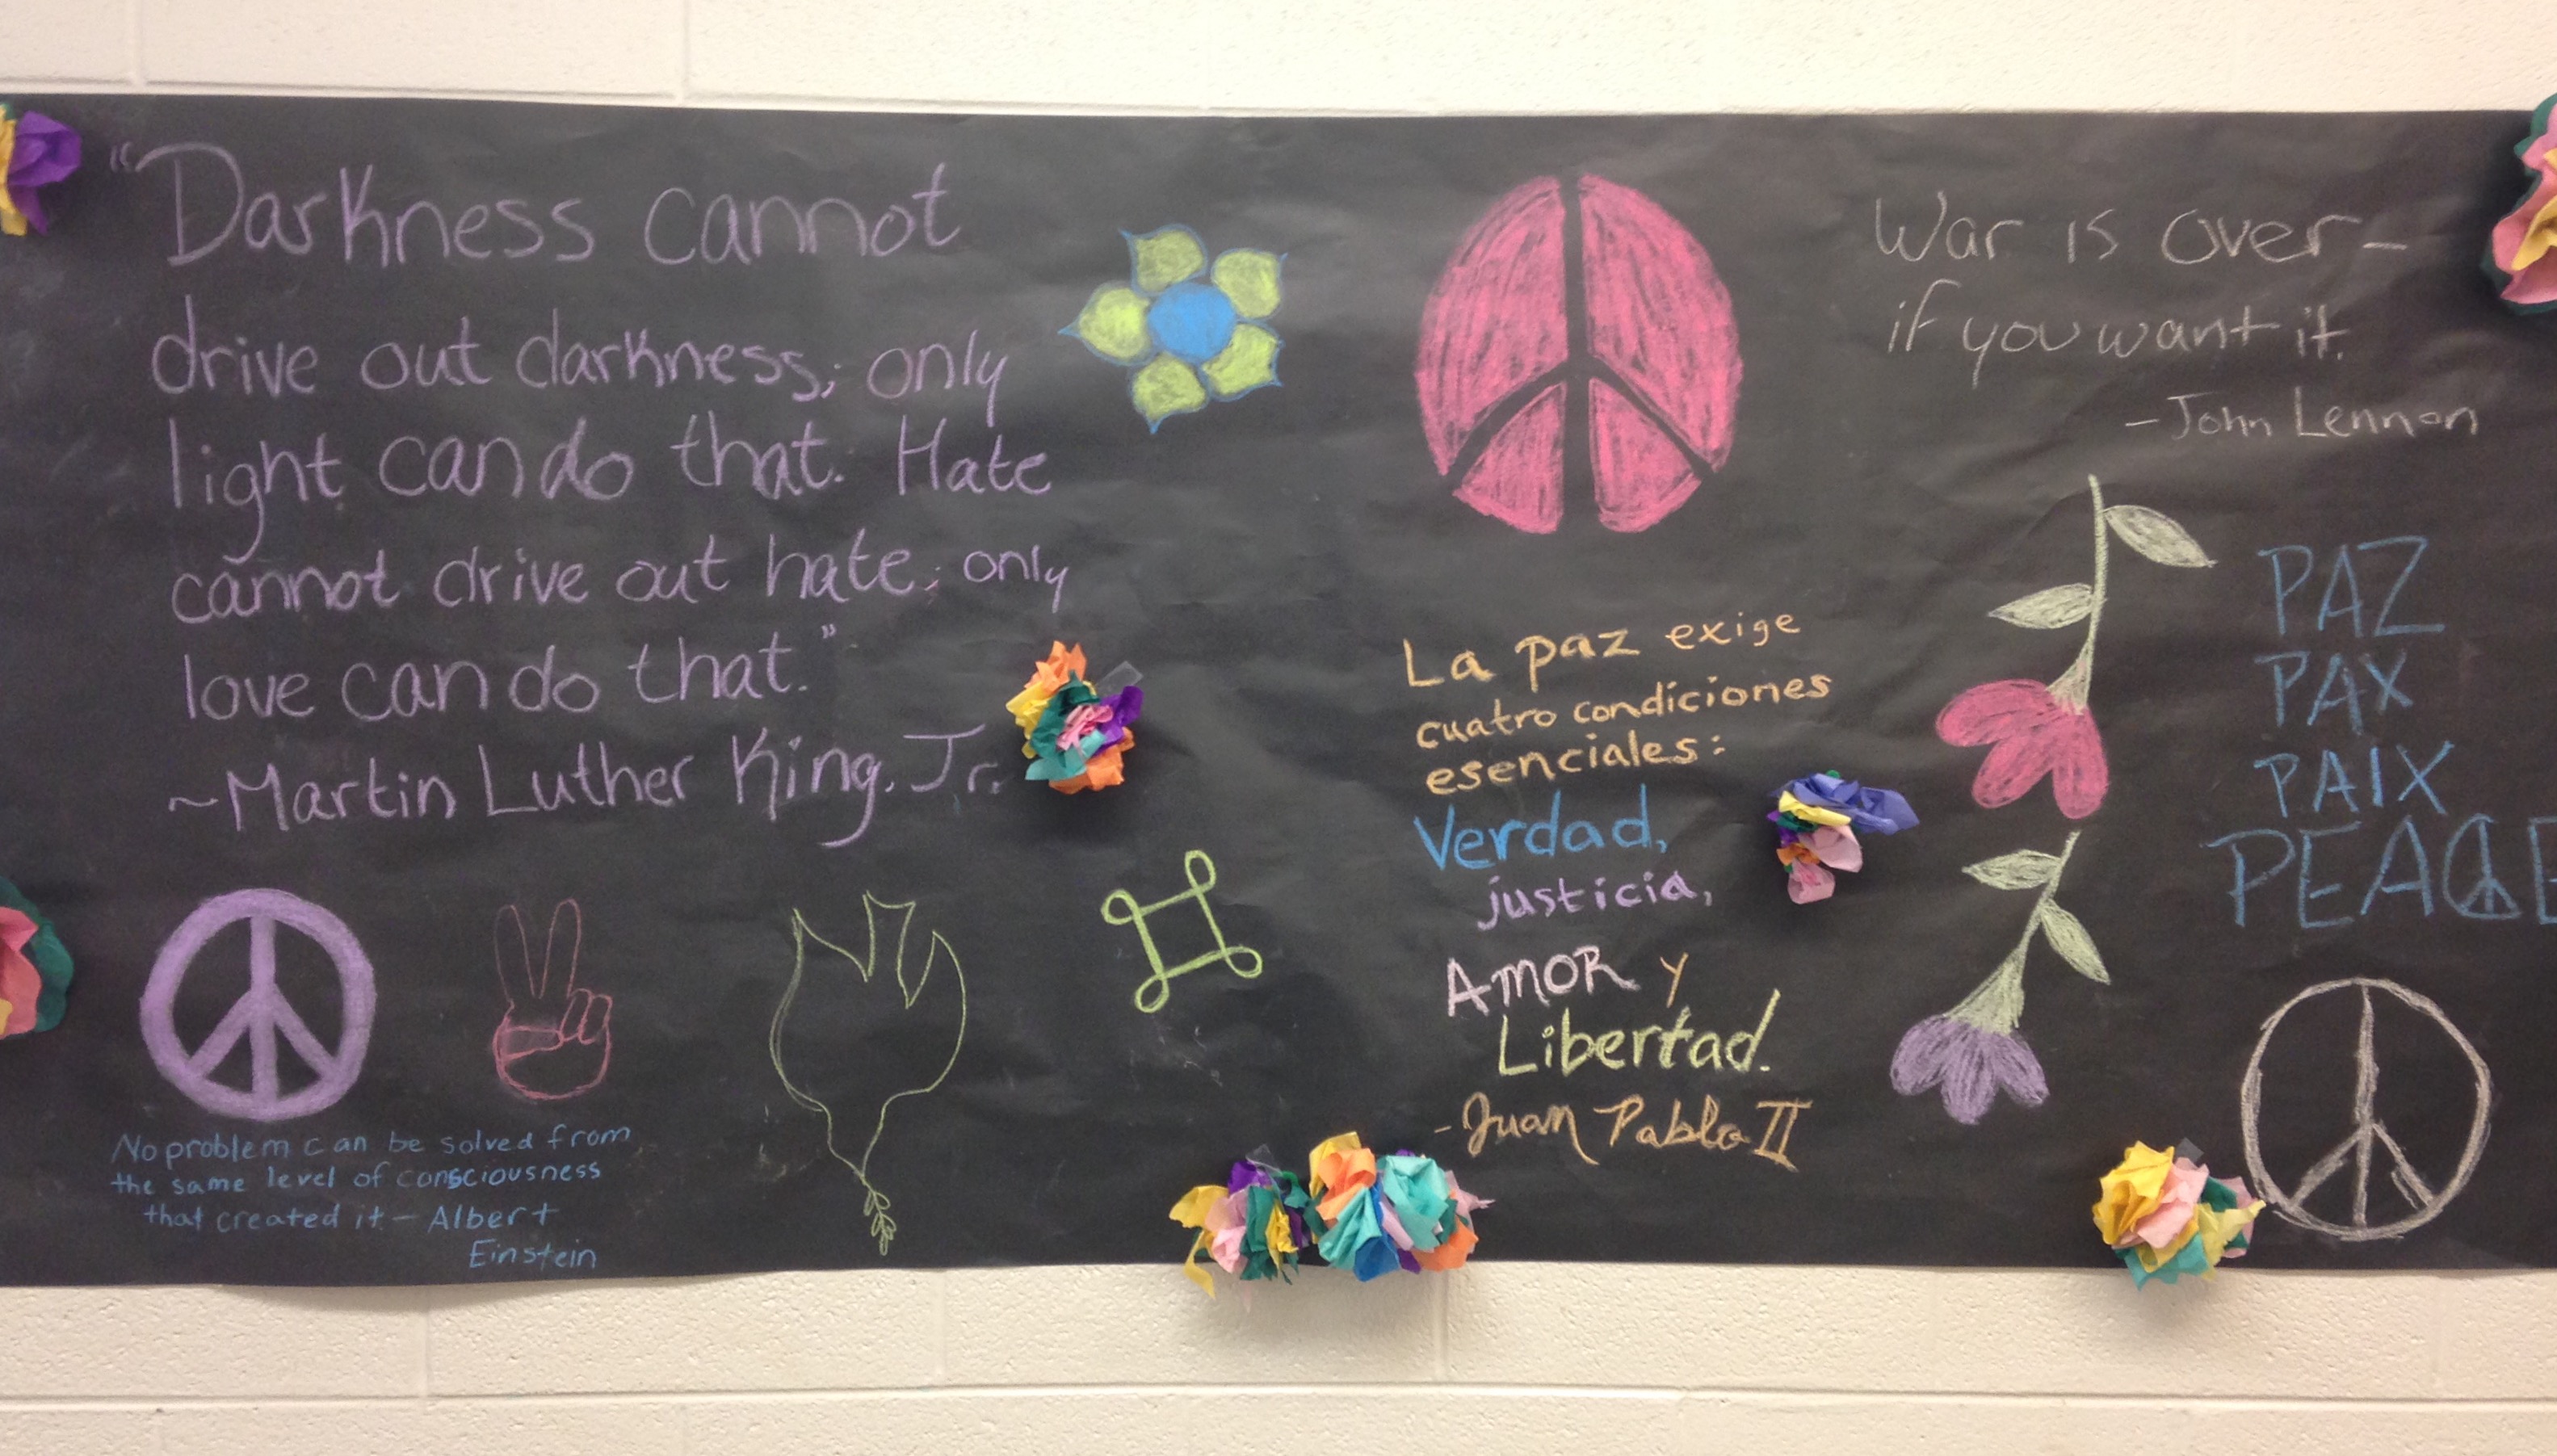 "Darkness cannot
drive out darkness; only
light can do that. Hate
cannot drive out hate; only
love can do that."
~Martin Luther King, Jr.
No problem can be solved from
the same level of consciousness
that created it - Albert
Einstein
La paz exige
cuatro condiciones
esenciales:
Verdad,
justicia,
AMOR y
Libertad.
-Juan Pablo II
War is over-
if you want it.
-John Lennon
PAZ
PAX
PAIX
PEACE